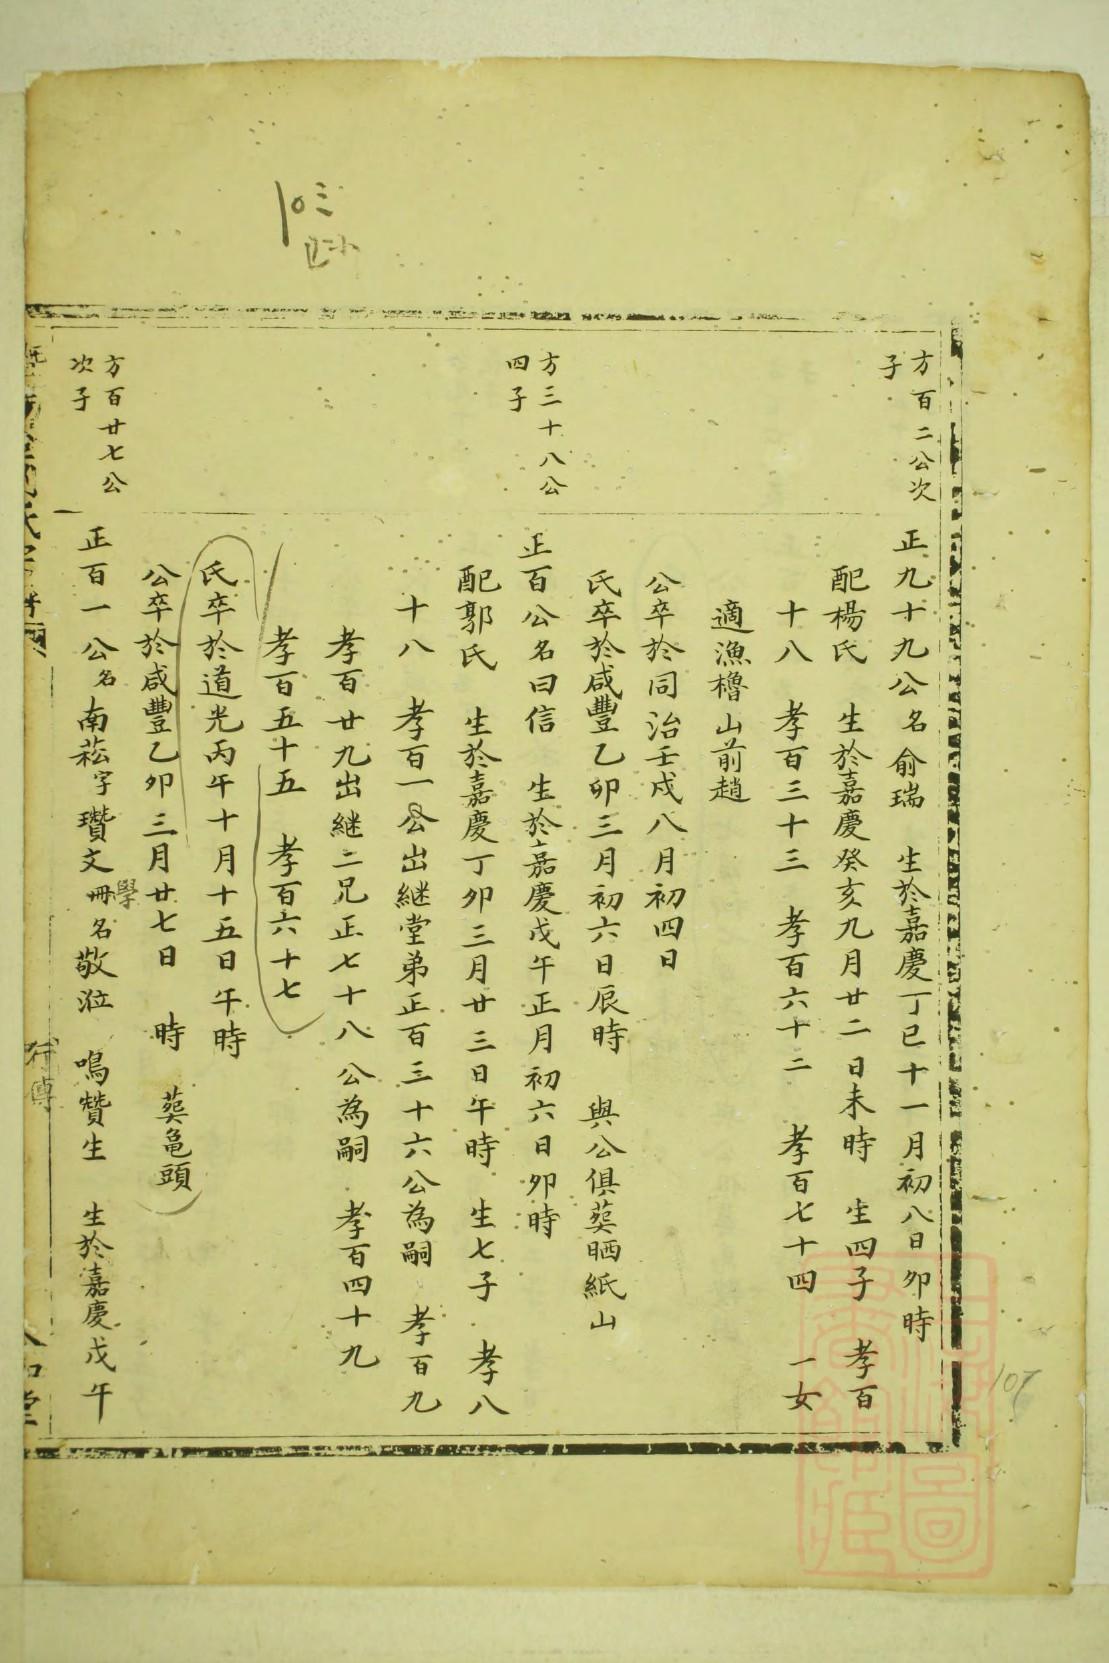 方百二公次
子
正九十九公名俞瑞 生於嘉慶丁巳十一月初八日卯時
配楊氏 生於嘉慶癸亥九月廿二日未時 生四子 孝百
十八 孝百三十三 孝百六十二 孝百七十四 一女
適漁櫓山前趙
公卒於同治壬戌八月初四日
氏卒於咸豐乙卯三月初六日辰時 與公俱葬晒紙山
方三十八公
四子
正百公名曰信 生於嘉慶戊午正月初六日卯時
配郭氏 生於嘉慶丁卯三月廿三日午時 生七子 孝八
十八 孝百一公出継堂弟正百三十六公為嗣 孝百九
孝百廿九出継二兄正七十八公為嗣 孝百四十九
孝百五十五 孝百六十七
氏卒於道光丙午十月十五日午時
公卒於咸豐乙卯三月廿七日 時 葬龜頭
方百廿七公
次子
正百一公名南菘字瓚文學冊名敬涖 鳴贊生 生於嘉慶戊午
行傳
107